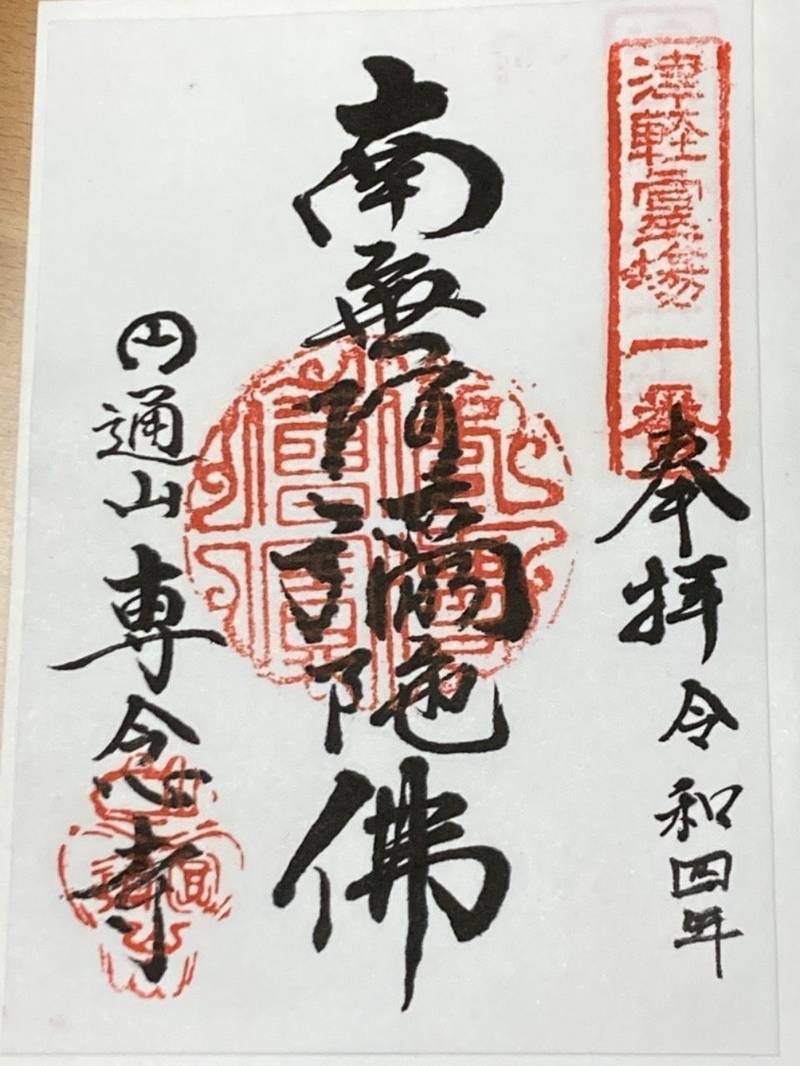 津軽霊場一番
奉拝 令和四年
南無阿彌陀佛
円通山 専念寺